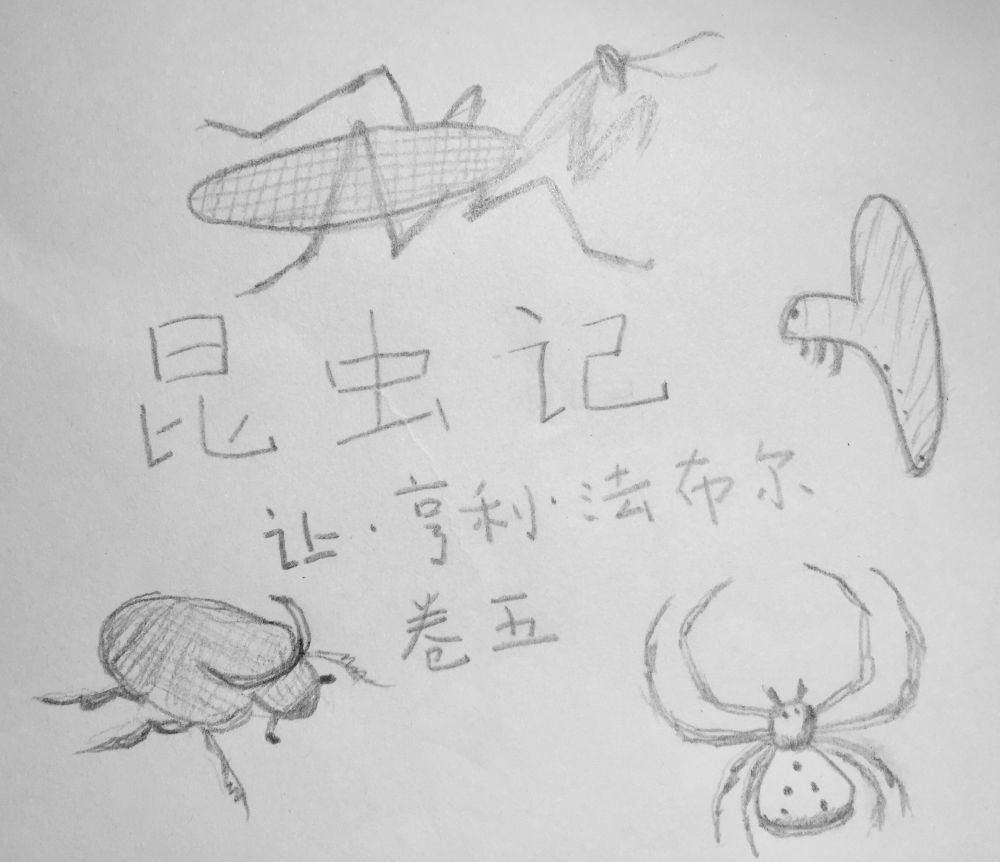 昆虫记
让·亨利·法布尔
卷五